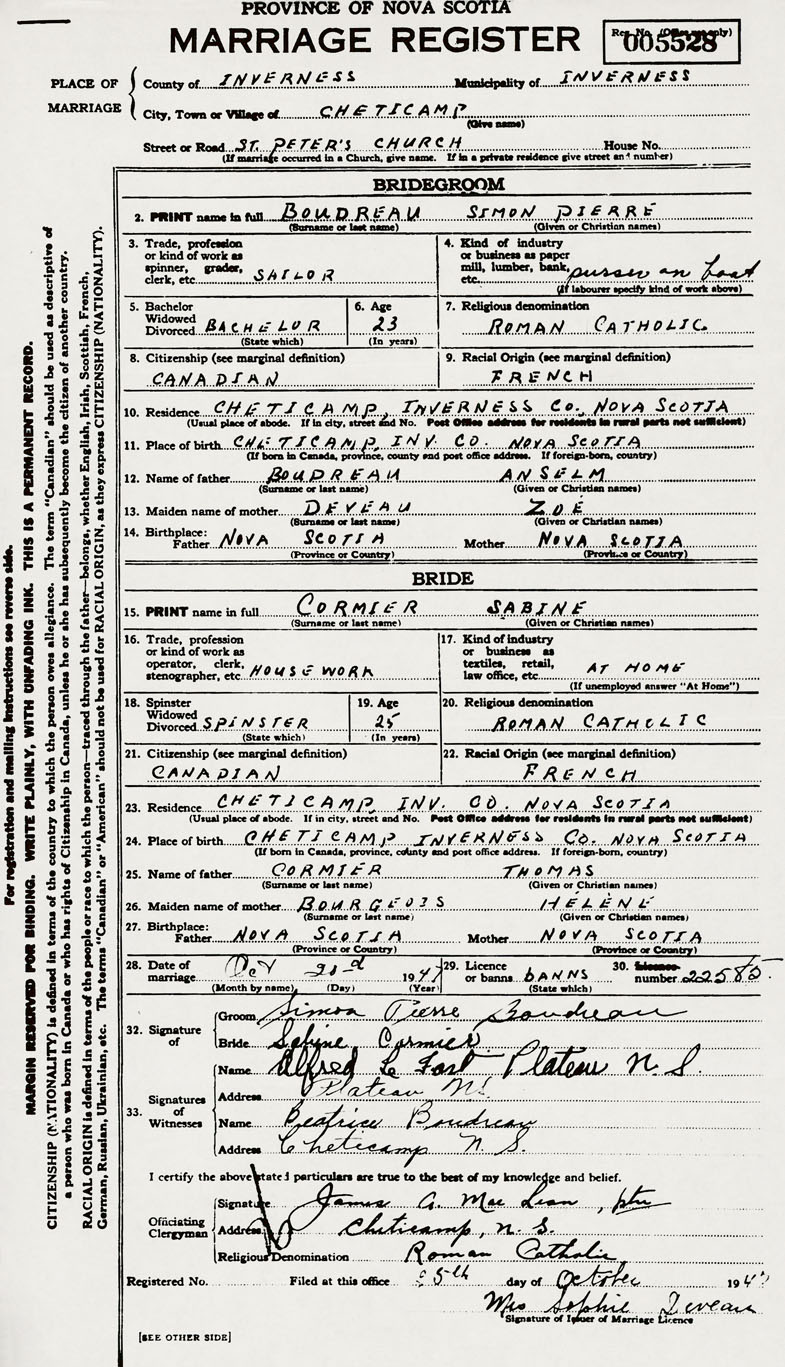 PROVINCE OF NOVA SCOTIA
MARRIAGE REGISTER
Reg. No. (Office use only)
005528
PLACE OF MARRIAGE
County of INVERNESS Municipality of INVERNESS
City, Town or Village of CHETICAMP
(Give name)
Street or Road ST. PETER'S CHURCH House No.
(If marriage occurred in a Church, give name. If in a private residence give street and number)
BRIDEGROOM
2. PRINT name in full BOUDREAU SIMON PIERRE
(Surname or last name) (Given or Christian names)
3. Trade, profession
or kind of work as
spinner, grader,
clerk, etc. SAILOR
4. Kind of industry
or business as paper
mill, lumber, bank,
etc. purser on boat
(If labourer specify kind of work above)
5. Bachelor
Widowed
Divorced BACHELOR
(State which)
6. Age
23
(In years)
7. Religious denomination
ROMAN CATHOLIC
8. Citizenship (see marginal definition)
CANADIAN
9. Racial Origin (see marginal definition)
FRENCH
10. Residence CHETICAMP, INVERNESS CO., NOVA SCOTIA
(Usual place of abode. If in city, street and No. Post Office address for residents in rural parts not sufficient)
11. Place of birth CHETICAMP, INV. CO. NOVA SCOTIA
(If born in Canada, province, county and post office address. If foreign-born, country)
12. Name of father BOUDREAU ANSELM
(Surname or last name) (Given or Christian names)
13. Maiden name of mother DEVEAU ZOÉ
(Surname or last name) (Given or Christian names)
14. Birthplace:
Father NOVA SCOTIA Mother NOVA SCOTIA
(Province or Country) (Province or Country)
BRIDE
15. PRINT name in full CORMIER SABINE
(Surname or last name) (Given or Christian names)
16. Trade, profession
or kind of work as
operator, clerk,
stenographer, etc. HOUSE WORK
17. Kind of industry
or business as
textiles, retail,
law office, etc. AT HOME
(If unemployed answer "At Home")
18. Spinster
Widowed
Divorced SPINSTER
(State which)
19. Age
25
(In years)
20. Religious denomination
ROMAN CATHOLIC
21. Citizenship (see marginal definition)
CANADIAN
22. Racial Origin (see marginal definition)
FRENCH
23. Residence CHETICAMP, INV. CO. NOVA SCOTIA
(Usual place of abode. If in city, street and No. Post Office address for residents in rural parts not sufficient)
24. Place of birth CHETICAMP INVERNESS CO. NOVA SCOTIA
(If born in Canada, province, county and post office address. If foreign-born, country)
25. Name of father CORMIER THOMAS
(Surname or last name) (Given or Christian names)
26. Maiden name of mother BOURGEOIS HÉLÈNE
(Surname or last name) (Given or Christian names)
27. Birthplace:
Father NOVA SCOTIA Mother NOVA SCOTIA
(Province or Country) (Province or Country)
28. Date of
marriage Oct 1947
(Month by name) (Day) (Year)
29. Licence
or banns BANNS
(State which)
30. Licence
number 22585
32. Signature of
Groom Simon Pierre Boudreau
Bride Sabine Cormier
33. Signatures of Witnesses
Name Alfred Le Fort Plateau N.S.
Address Plateau NS
Name Beatrice Boudreau
Address Cheticamp N.S.
I certify the above stated particulars are true to the best of my knowledge and belief.
Officiating Clergyman
Signature James A. MacLean, ptre
Address Cheticamp, N.S.
Religious Denomination Roman Catholic
Registered No. Filed at this office day of October 194
Mrs Sophie Deveau
Signature of Issuer of Marriage Licence
[SEE OTHER SIDE]
For registration and mailing instructions see reverse side.
MARGIN RESERVED FOR BINDING. WRITE PLAINLY, WITH UNFADING INK. THIS IS A PERMANENT RECORD.
CITIZENSHIP (NATIONALITY) is defined in terms of the country to which the person owes allegiance. The term "Canadian" should be used as descriptive of
a person who was born in Canada or who has rights of Citizenship in Canada, unless he or she has subsequently become the citizen of another country.
RACIAL ORIGIN is defined in terms of the people or race to which the person—traced through the father—belongs, whether English, Irish, Scottish, French,
German, Russian, Ukrainian, etc. The terms "Canadian" or "American" should not be used for RACIAL ORIGIN, as they express CITIZENSHIP (NATIONALITY).